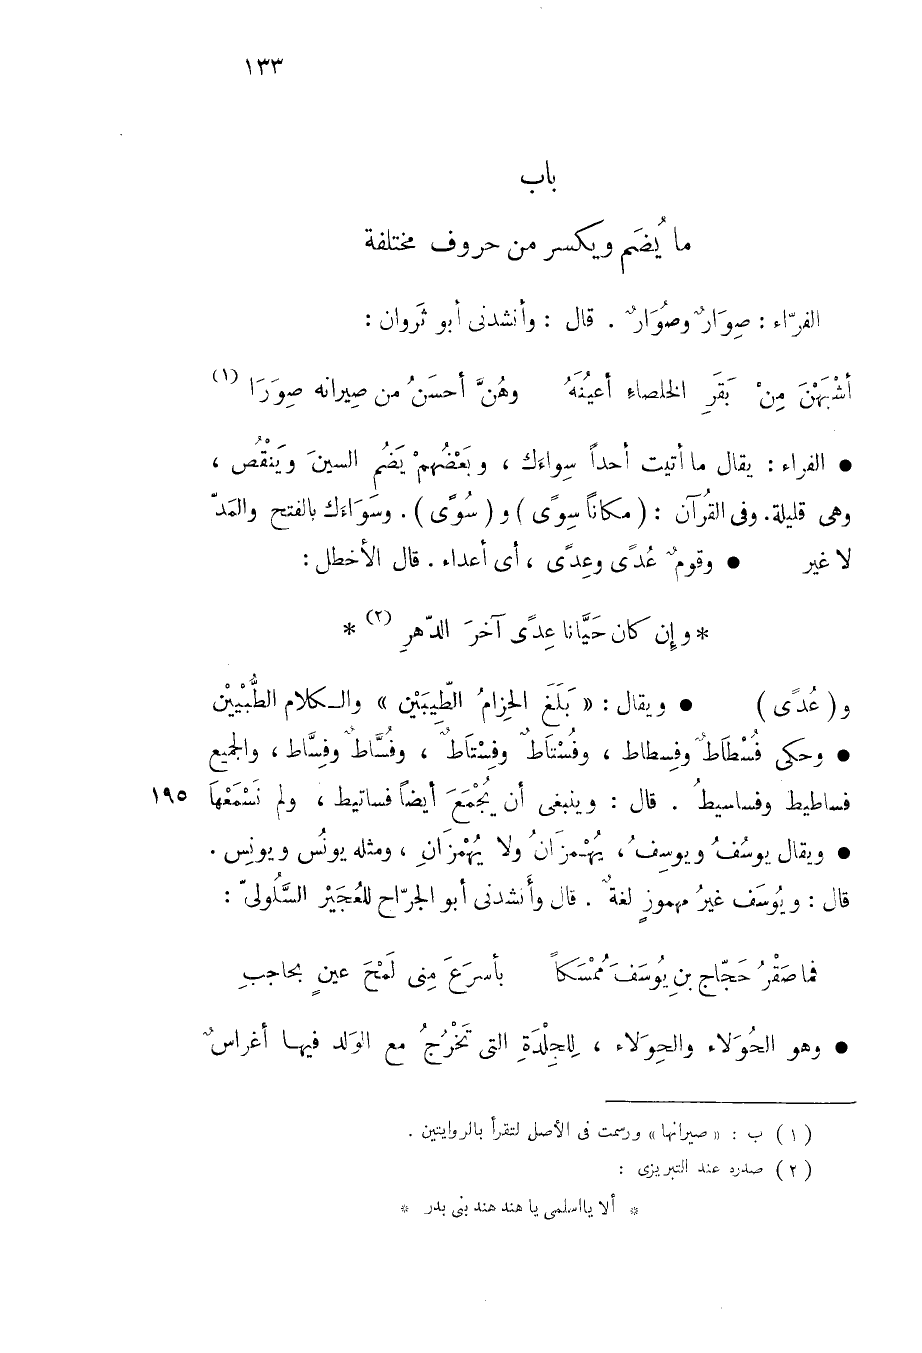 ١٣٣
باب
ما يُضَم ويكسر من حروف مختلفة
الفرّاء : صِوَارٌ وصُوَارٌ . قال : وأنشدنى أبو ثَروان :
أشْبَهْنَ مِنْ بَقَرِ الخلصاءِ أعيُنَهُ وهُنَّ أحسَنُ من صِيرانه صِوَرَا (١)
● الفراء : يقال ما أتيت أحداً سِواءَك ، وبَعْضُهمْ يَضُم السينَ ويَنْقُص ،
وهى قليلة. وفى القُرآن : ( مكاناً سِوًى ) و ( سُوًى ) . وسَوَاءَك بالفتح والمَدّ
لا غير ● وقومٌ عُدًى وعِدًى ، أى أعداء . قال الأخطل :
* وإن كان حَيَّانا عِدًى آخرَ الدّهرِ (٢) *
و ( عُدًى ) ● ويقال : « بَلَغَ الحِزامُ الطِّيبَيْن » والـكلام الطُّبْيَيْن
● وحكى فُسْطَاطٌ وفِسطاط ، وفُسْتاطٌ وفِسْتاطٌ ، وفُسَّاطٌ وفِسَّاط ، والجميع
فساطيط وفساسيطُ . قال : وينبغى أن يُجْمَعَ أيضاً فساتيط ، ولم نَسْمَعْها ١٩٥
● ويقال يوسُفُ ويوسِفُ ، يُهْـمزَانُ ولا يُهْمزَانِ ، ومثله يونُس ويونِس .
قال : ويُوسَف غيرُ مهموزٍ لغةٌ . قال وأَنشدنى أبو الجرّاح للعُجَيْر السَّلُولىّ :
فما صَقْرُ حَجّاج بنِ يُوسَفَ مُمْسَكاً بأسرَعَ مِنى لَمْحَ عينٍ بحاجبِ
● وهو الحُوَلاء والحِوَلاء ، لِلجِلْدَةِ التى تَخْرُجُ مع الوَلد فيهـا أغراسٌ
( ١ ) ب : « صيرانها » ورسمت فى الأصل لتقرأ بالروايتين .
( ٢ ) صدره عند التبريزى :
* ألا يااسلمى يا هند هند بنى بدر *